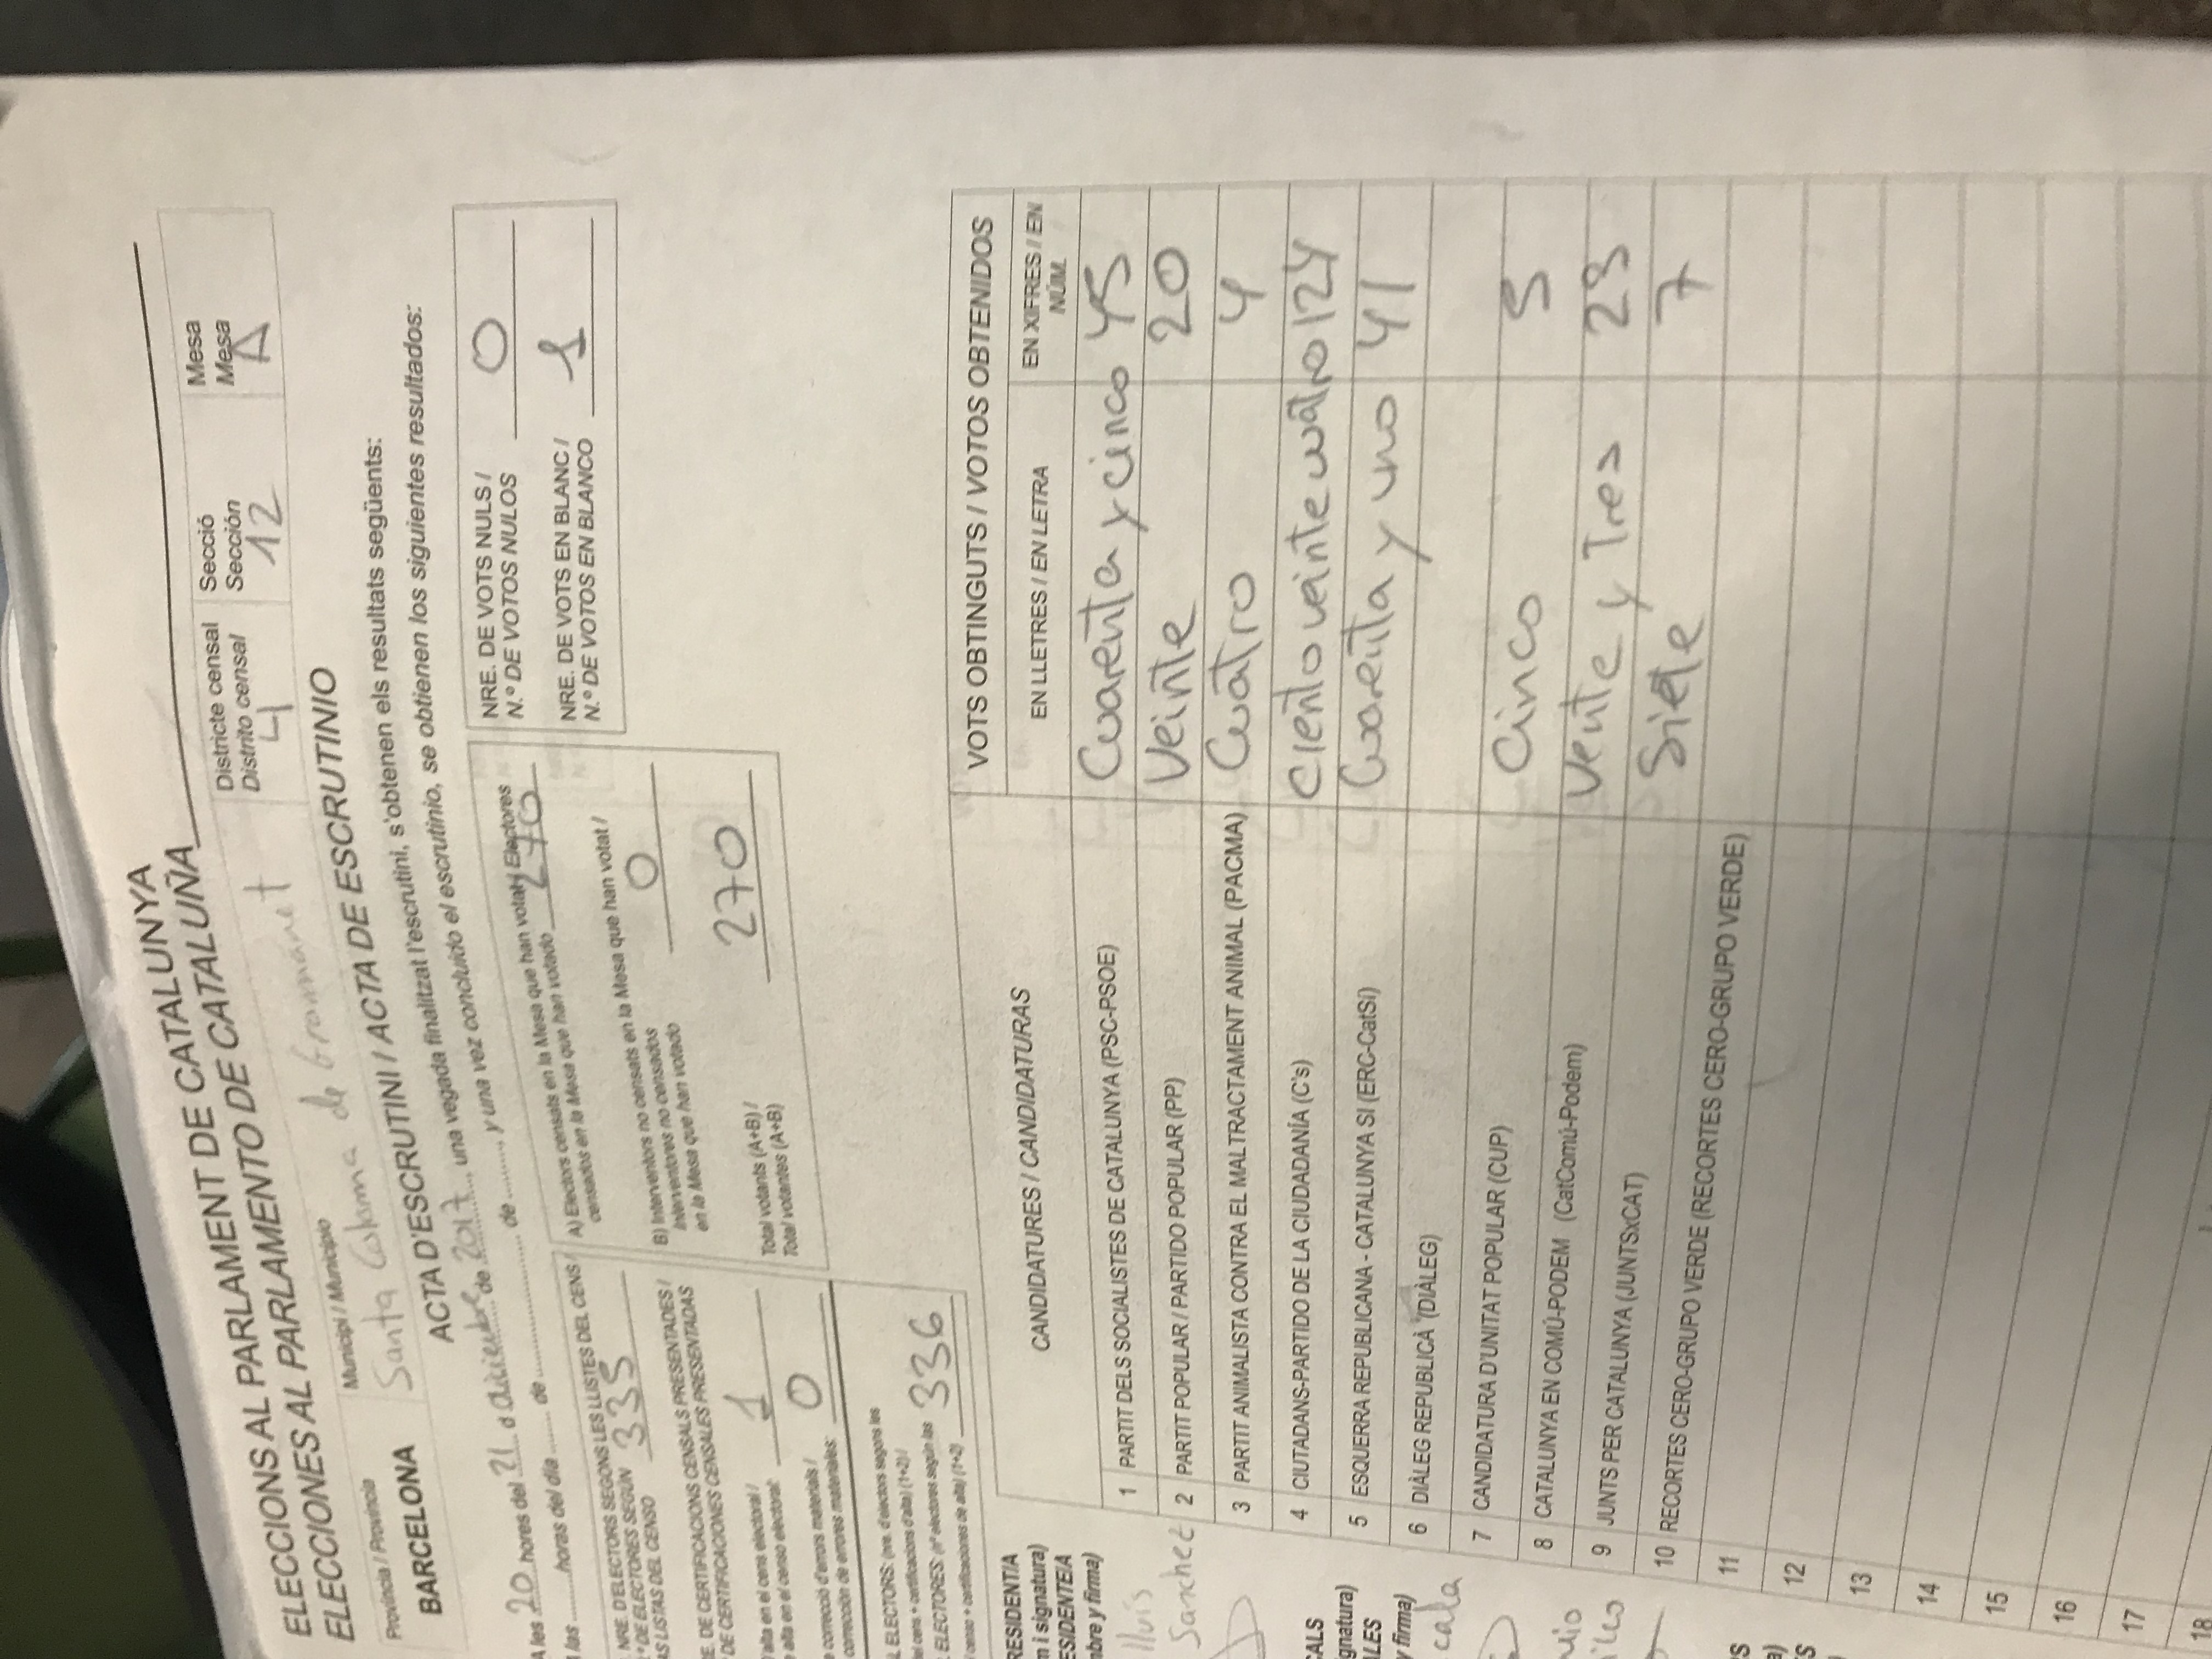 ELECCIONS AL PARLAMENT DE CATALUNYA
ELECCIONES AL PARLAMENTO DE CATALUÑA
Província / Provincia
BARCELONA
Municipi / Municipio
Santa Coloma de Gramanet
Districte censal
Distrito censal
4
Secció
Sección
12
Mesa
Mesa
A
ACTA D'ESCRUTINI / ACTA DE ESCRUTINIO
A les 20 hores del 21 d diciembre de 2017, una vegada finalitzat l'escrutini, s'obtenen els resultats següents:
las ......... horas del día ........ de .................... de ........., y una vez concluido el escrutinio, se obtienen los siguientes resultados:
NRE. D'ELECTORS SEGONS LES LLISTES DEL CENS /
º DE ELECTORES SEGÚN
AS LISTAS DEL CENSO 335
E. DE CERTIFICACIONS CENSALS PRESENTADES /
DE CERTIFICACIONES CENSALES PRESENTADAS
'alta en el cens electoral /
alta en el censo electoral: 1
correcció d'errors materials /
corrección de errores materiales: 0
L ELECTORS: (nre. d'electors segons les
del cens + certificacions d'alta) (1+2) /
ELECTORES: (nº electores según las
censo + certificaciones de alta) (1+2) 336
A) Electors censats en la Mesa que han votat / Electores
censados en la Mesa que han votado 270
B) Interventors no censats en la Mesa que han votat /
Interventores no censados
en la Mesa que han votado 0
Total votants (A+B) /
Total votantes (A+B) 270
NRE. DE VOTS NULS /
N.º DE VOTOS NULOS 0
NRE. DE VOTS EN BLANC /
N.º DE VOTOS EN BLANCO 1
RESIDENT/A
m i signatura)
ESIDENTE/A
mbre y firma)
lluís
Sanchez
CALS
ignatura)
ALES
y firma)
cala
CANDIDATURES / CANDIDATURAS
VOTS OBTINGUTS / VOTOS OBTENIDOS
EN LLETRES / EN LETRA
EN XIFRES / EN NÚM.
1 PARTIT DELS SOCIALISTES DE CATALUNYA (PSC-PSOE) Cuarenta y cinco 45
2 PARTIT POPULAR / PARTIDO POPULAR (PP) Veinte 20
3 PARTIT ANIMALISTA CONTRA EL MALTRACTAMENT ANIMAL (PACMA) Cuatro 4
4 CIUTADANS-PARTIDO DE LA CIUDADANÍA (C's) Ciento veinte cuatro 124
5 ESQUERRA REPUBLICANA - CATALUNYA SI (ERC-CatSí) Cuarenta y uno 41
6 DIÀLEG REPUBLICÀ (DIÀLEG)
7 CANDIDATURA D'UNITAT POPULAR (CUP) Cinco 5
8 CATALUNYA EN COMÚ-PODEM (CatComú-Podem) Vente y Tres 23
9 JUNTS PER CATALUNYA (JUNTSxCAT) Siete 7
10 RECORTES CERO-GRUPO VERDE (RECORTES CERO-GRUPO VERDE)
11
12
13
14
15
16
17
18